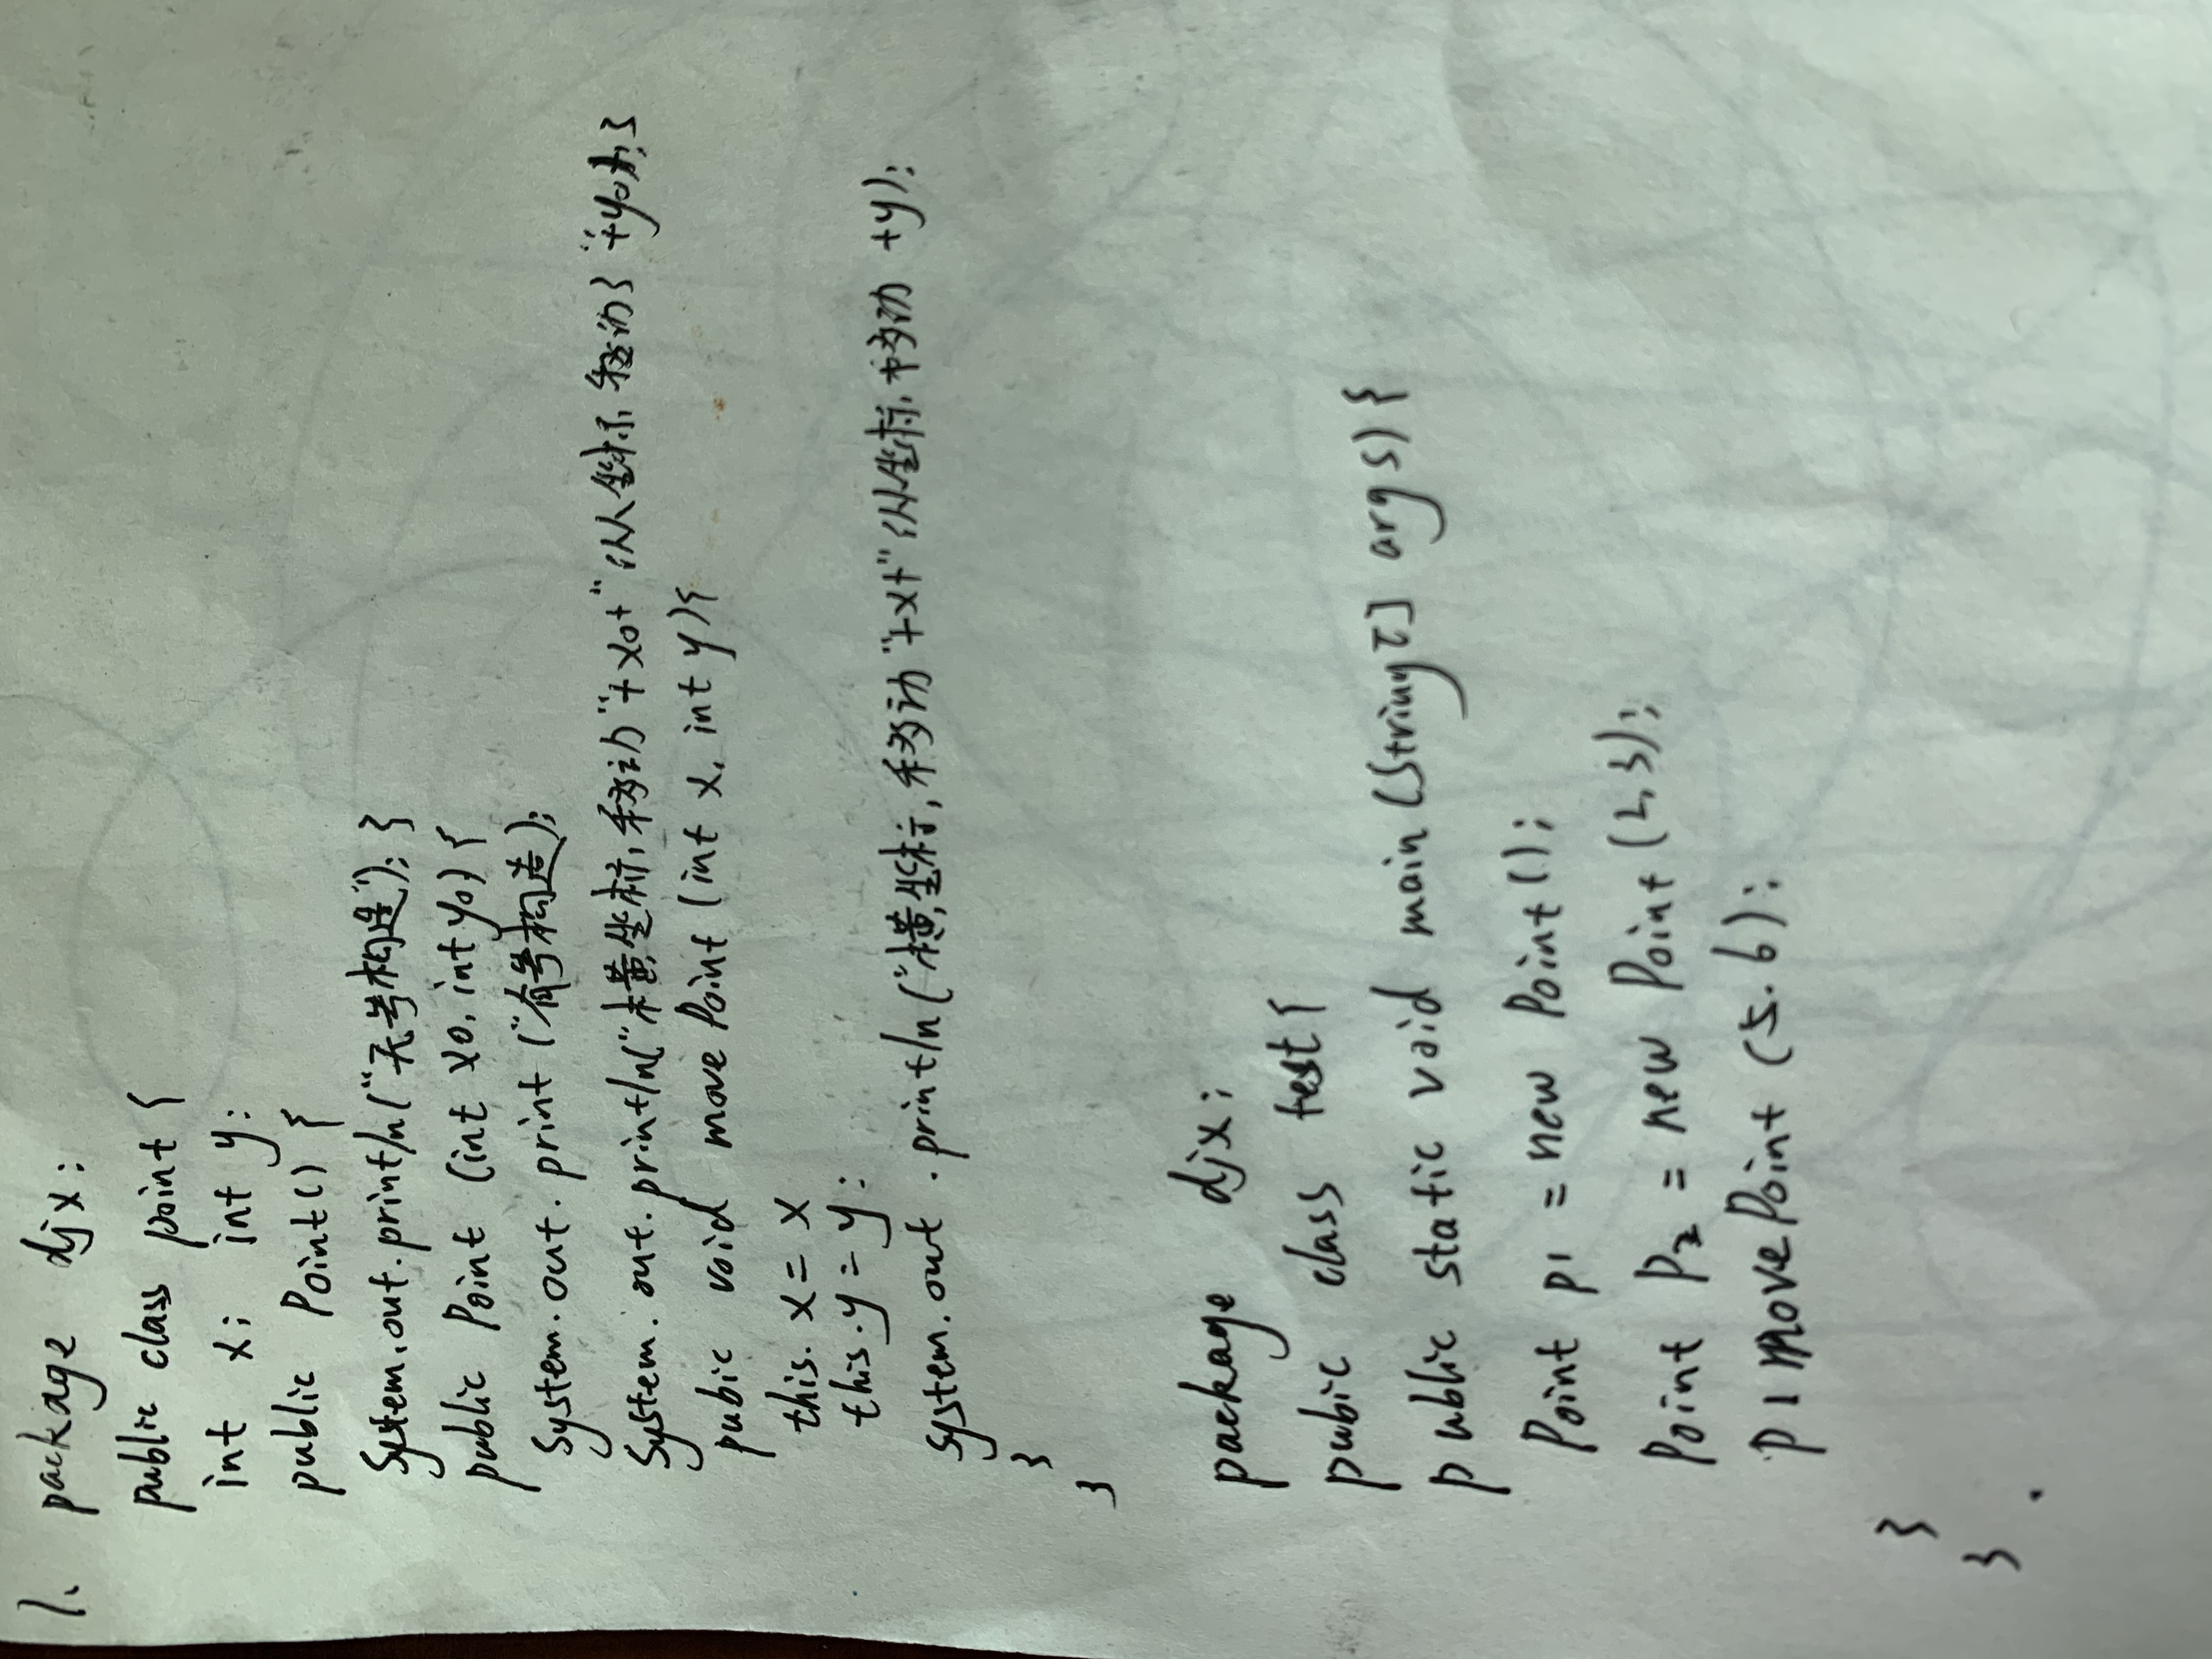 1. package djx;
public class point {
int x; int y;
public Point() {
System.out.println("无参构造"); }
public Point (int x0, int y0) {
System.out.print ("有参构造);
System.out.println("横坐标,移动"+x0+" 坐标,移动} "+y0);}
pubic void movePoint (int x, int y){
this.x = x
this.y = y;
system.out.println("横坐标,移动"+x+" 坐标, 动 +y);
}
}
package djx;
pubic class test {
public static void main (String[] args) {
Point p1 = new Point();
Point p2 = new Point (2,3);
p1movePoint (5.6);
}
}.